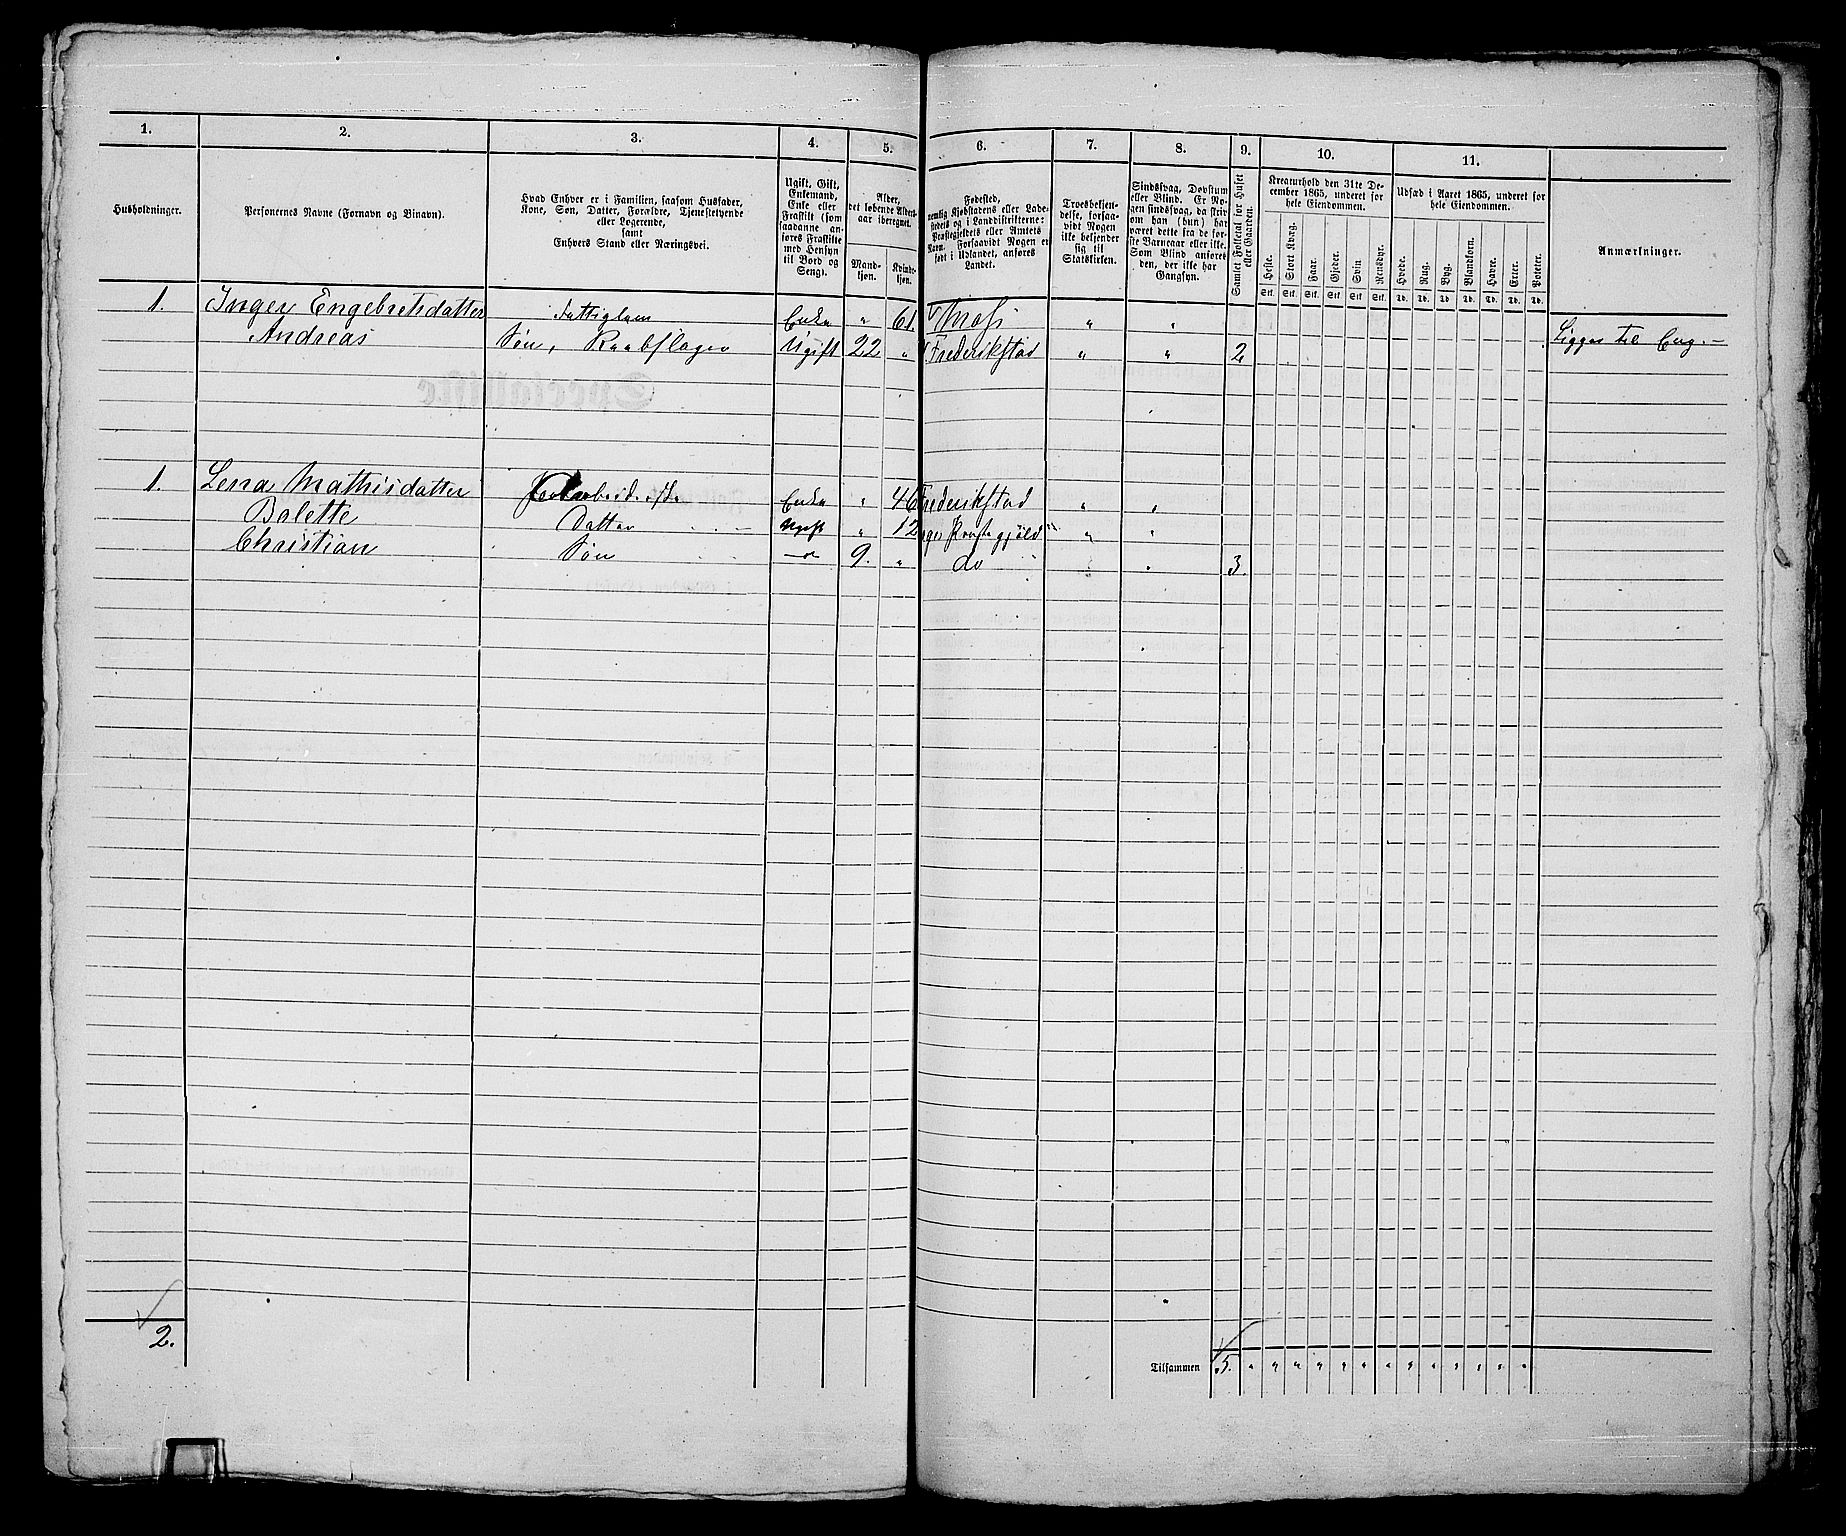 1. 2. 3. 4. 5. 6. 7. 8. 9. 10. 11.
Husholdninger.
Personernes Navne (Fornavn og Binavn).
Hvad Enhver er i Familien, saasom Husfader,
Kone, Søn, Datter, Forældre, Tjenestetyende
eller Logerende,
samt
Enhvers Stand eller Næringsvei.
Ugift, Gift,
Enkemand,
Enke eller
Fraskilt (som
saadanne an-
føres Fraskilte
med Hensyn
til Bord og
Seng).
Alder,
det løbende Alders-
aar iberegnet.
Mand-
kjøn.
Kvinde-
kjøn.
Fødested,
nemlig Kjøbstadens eller Lade-
stedets og i Landdistrikterne:
Præstegjeldets eller Amtets
Navn. Forsaavidt Nogen er
født i Udlandet, anføres
Landet.
Troesbekjen-
delse, forsaa-
vidt Nogen
ikke bekjender
sig til
Statskirken.
Sindssvag, Døvstum
eller Blind. Er No-
gen sindssvag, da skriv
om han (hun) har
været dette fra de før-
ste Barneaar eller ikke.
Som Blind anføres
den, der ikke har
Gangsyn.
Samlet Folketal for Huset
eller Gaarden.
Kreaturhold den 31te De-
cember 1865, underet for
hele Eiendommen.
Heste. Stort Kvæg. Faar. Gjeder. Svin Rensdyr.
Stk. Stk. Stk. Stk. Stk. Stk.
Udsæd i Aaret 1865, underet for
hele Eiendommen.
Hvede. Rug. Byg. Blandkorn. Havre. Erter. Poteter.
Td. Td. Td. Td. Td. Td. Td.
Anmærkninger.
1. Inger Engebretsdatter Fattiglem Enke " 61. Moss " "
Andreas Søn, Ugift 22 " Frederikstad " " 2 Ligger til Eng.-
1. Lena Mathisdatter Enke " 46 Frederikstad " "
Bolette Datter Ugift " 12 Præstegjeld " "
Christian Søn - " 9. " do " 3.
2.
Tilsammen 5. " " " " " " " " " " " " "